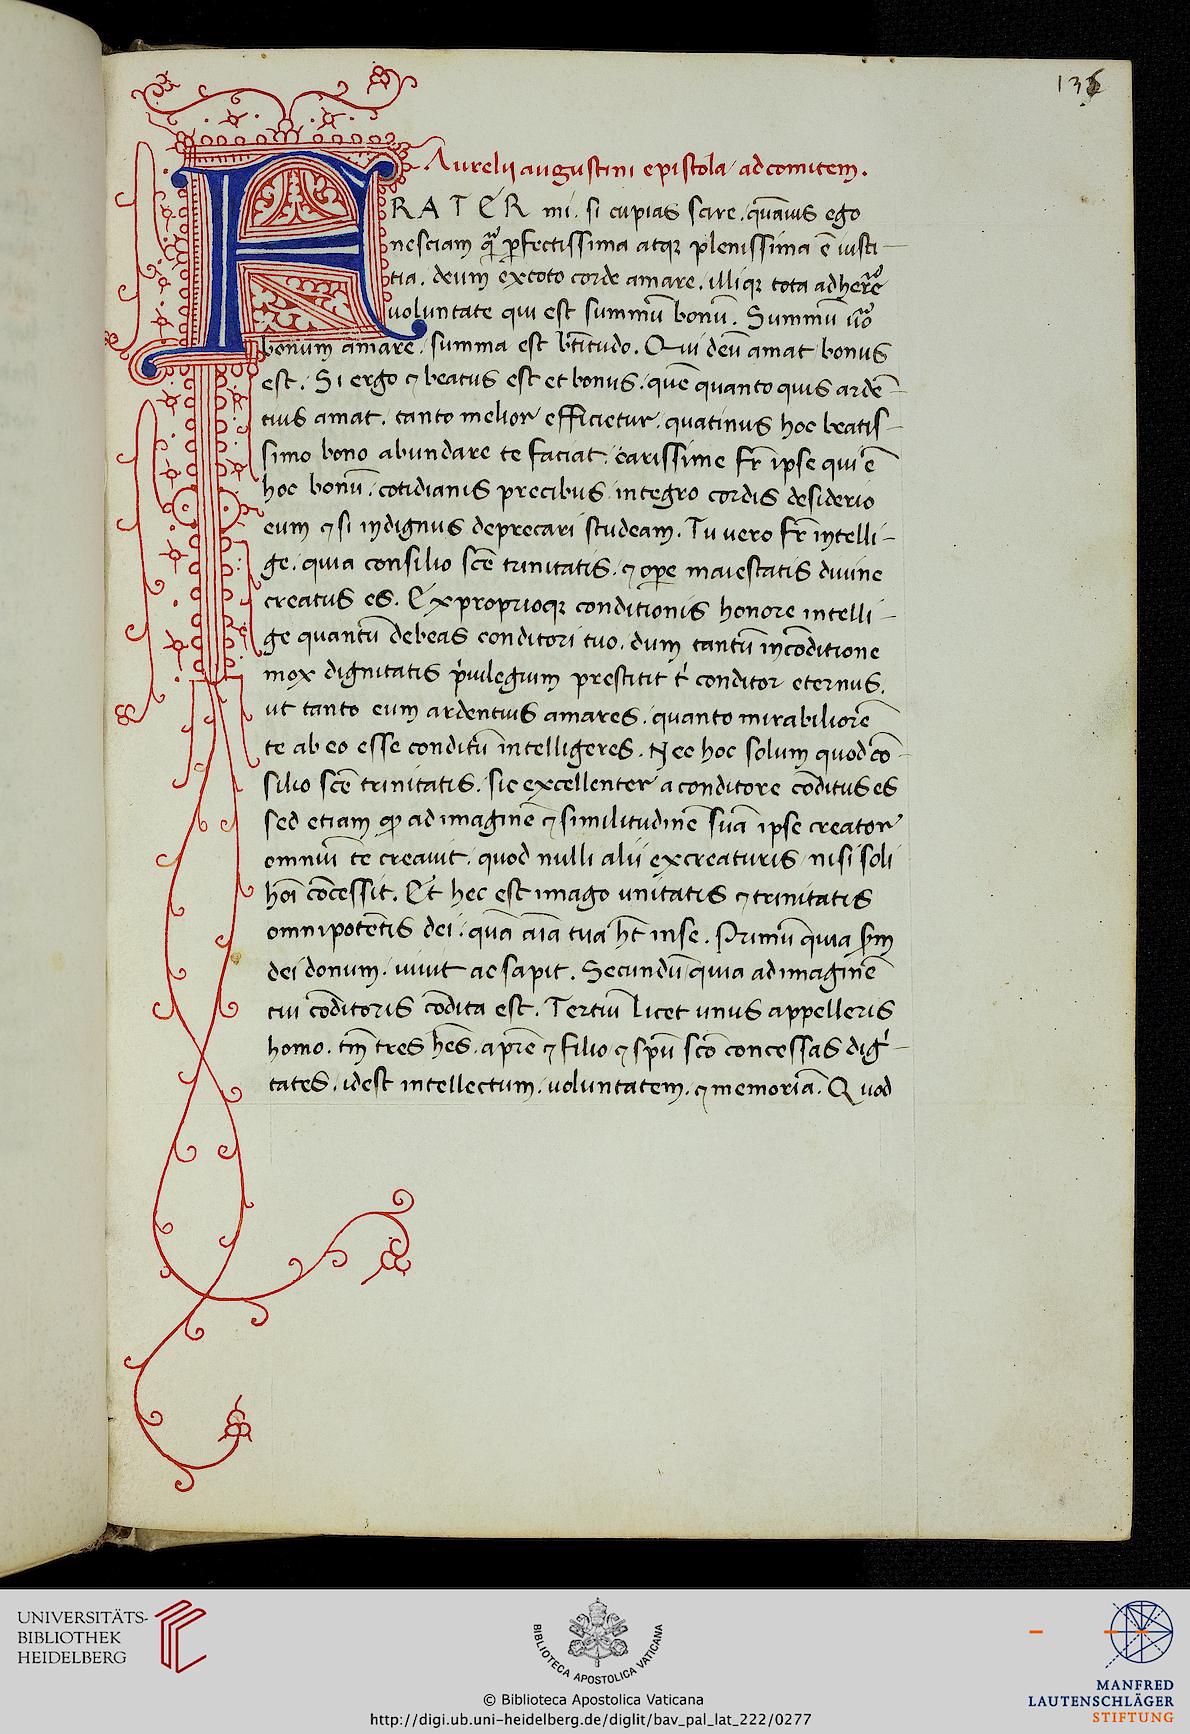 136
Aurelij augustini epistola ad comitem.
FRATER mi. si cupias scire. quãuis ego
nesciam qr̃ ꝑfectissima atqꝫ plenissima ẽ iusti-
tia. deum ex toto corde amare. illiqꝫ tota adherẽ
uoluntate qui est summũ bonũ. Summũ ũo
bonum amare. summa est bt̃itudo. Qui deũ amat bonus
est. Si ergo ⁊ beatus est et bonus. quẽ quanto quis ardẽ-
tius amat. tanto melior efficietur. quatinus hoc beatis-
simo bono abundare te faciat. carissime fr̃ ipse qui ẽ
hoc bonũ. cotidianis precibus integro cordis desiderio
eum ⁊ si indignus deprecari studeam. Tu uero fr̃ intelli-
ge. quia consilio scẽ trinitatis. ⁊ oꝑe maiestatis diuine
creatus es. Ex proprioqꝫ conditionis honore intelli-
ge quantũ debeas conditori tuo. dum tantũ in cõditione
mox dignitatis p̃uilegium prestitit t̃ conditor eternus.
ut tanto eum ardentius amares. quanto mirabiliorẽ
te ab eo esse conditũ intelligeres. Nec hoc solum quod cõ-
silio scẽ trinitatis. sic excellenter a conditore cõditus es
sed etiam ꝙ ad imaginẽ ⁊ similitudinẽ suã ipse creator
omniũ te creauit. quod nulli alii ex creaturis nisi soli
hoĩ cõcessit. Et hec est imago unitatis ⁊ trinitatis
omnipotẽtis dei. quã aĩa tua ht̃ in se. Primũ quia sm̃
dei donum. uiuit ac sapit. Secundũ quia ad imaginẽ
tui cõditoris cõdita est. Tertiũ licet unus appelleris
homo. tm̃ tres hẽs. a pr̃e ⁊ filio ⁊ sp̃u scõ concessas dig̃-
tates. idest intellectum. uoluntatem. ⁊ memoriã. Quod
UNIVERSITÄTS-
BIBLIOTHEK
HEIDELBERG
BIBLIOTECA APOSTOLICA VATICANA
© Biblioteca Apostolica Vaticana
http://digi.ub.uni-heidelberg.de/diglit/bav_pal_lat_222/0277
MANFRED
LAUTENSCHLÄGER
STIFTUNG